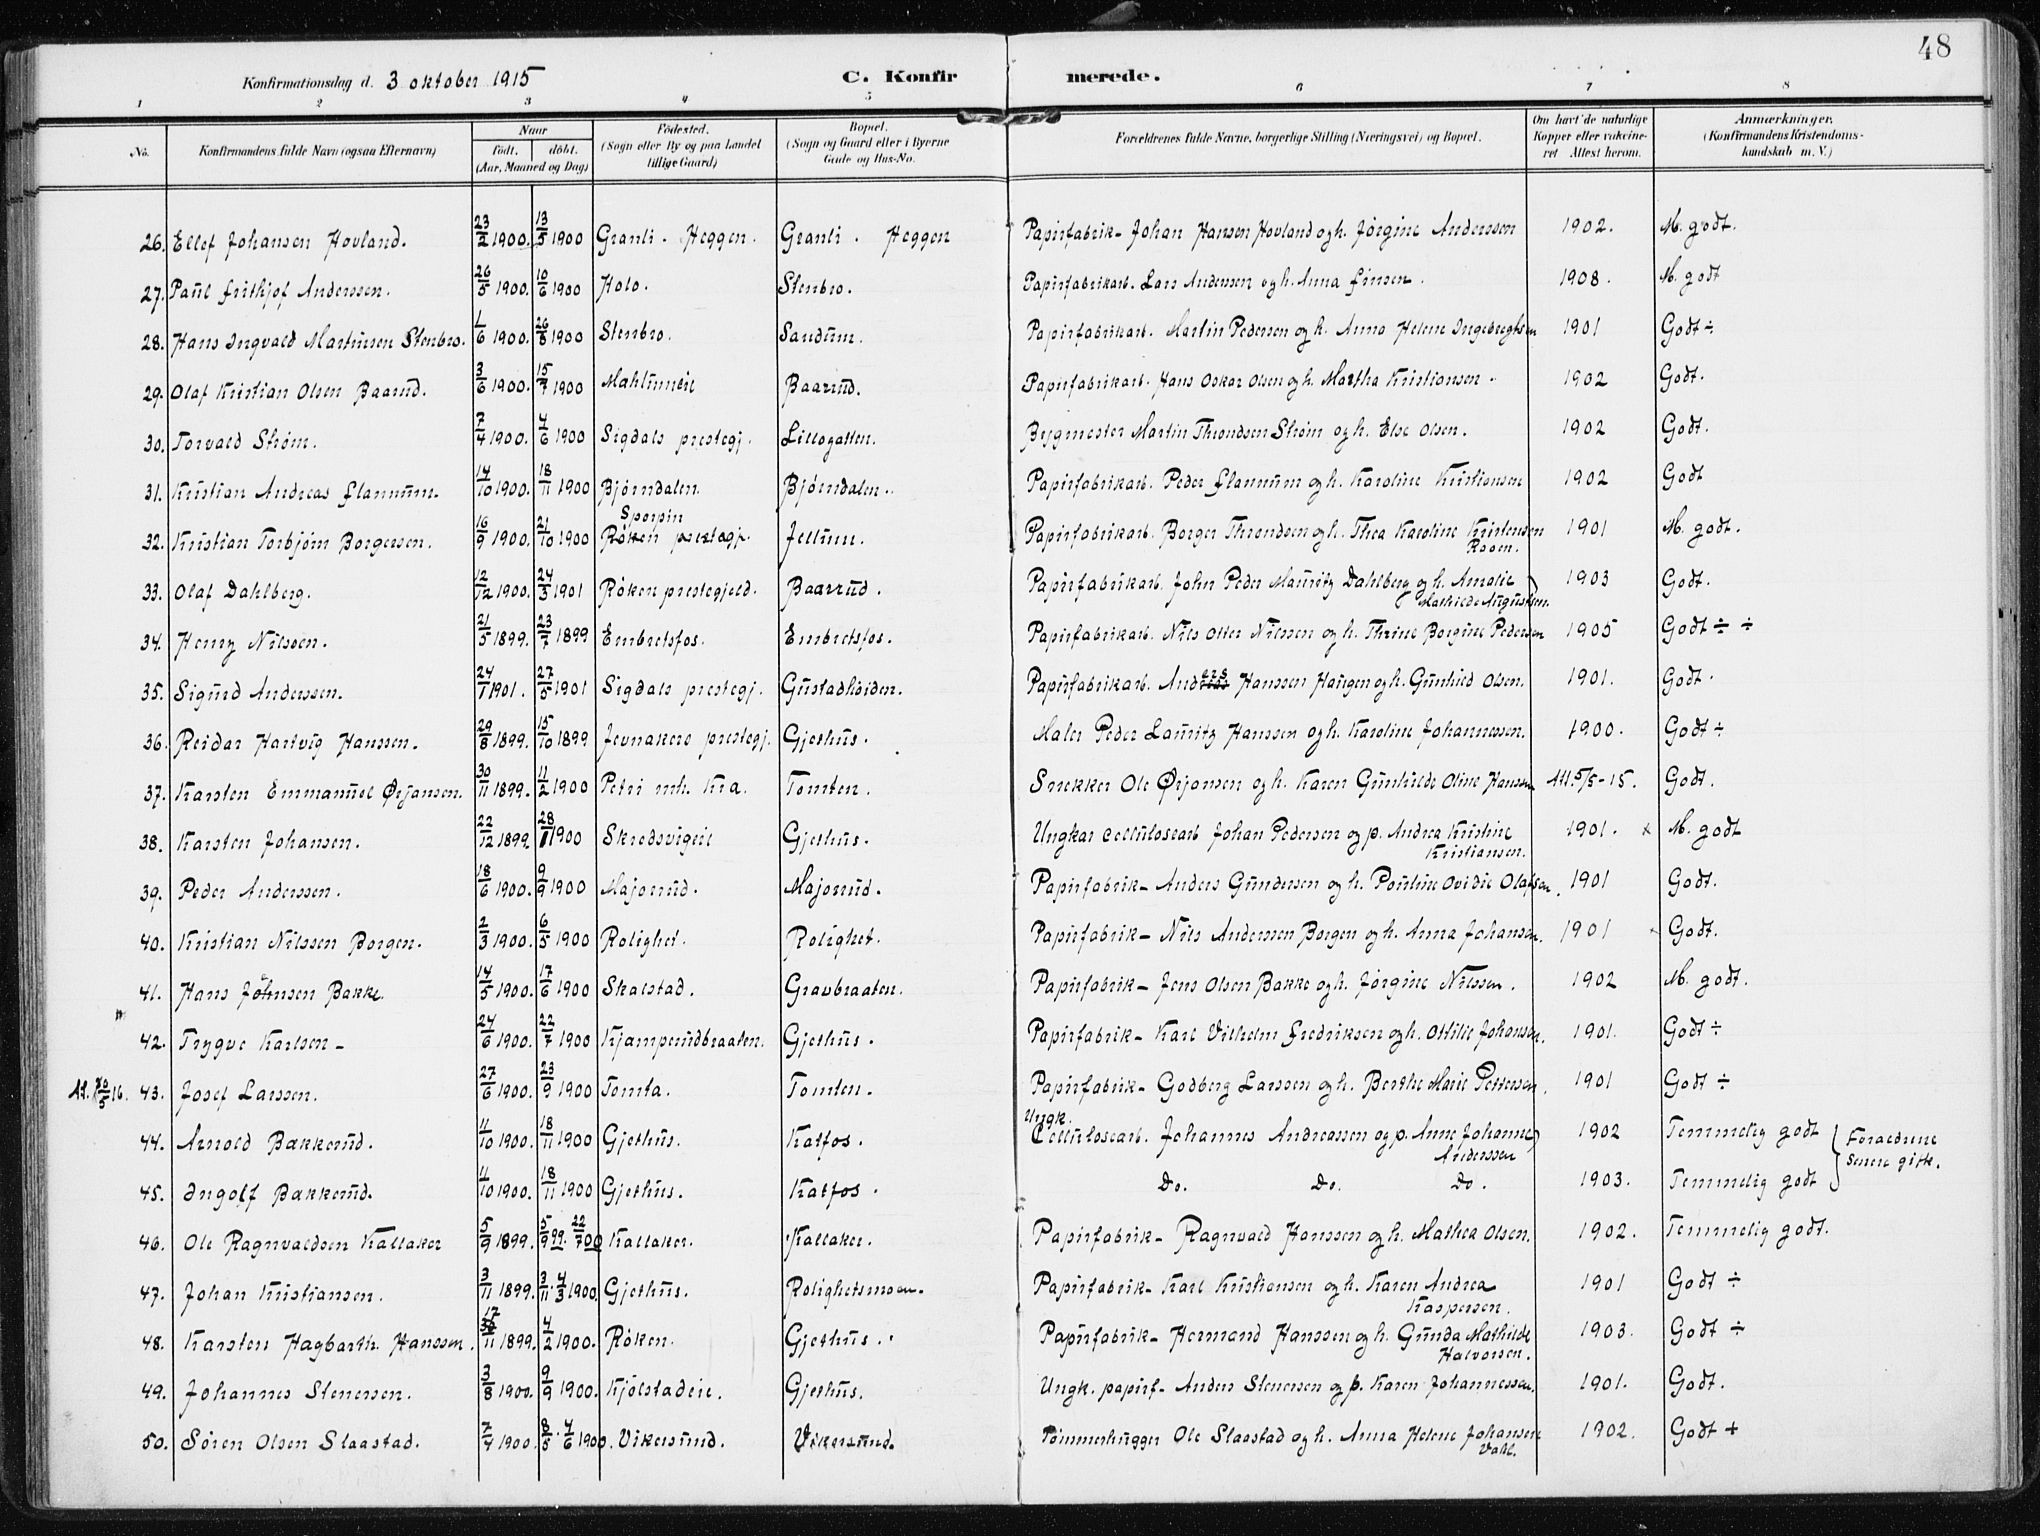 48
Konfirmationsdag d. 3 oktober 1915 C. Konfirmerede.
1 2 3 4 5 6 7 8
No. Konfirmandens fulde Navn (ogsaa Efternavn) Naar født. døbt. (Aar, Maaned og Dag) Fødested. (Sogn eller By og paa Landet tillige Gaard) Bopæl. (Sogn og Gaard eller i Byerne Gade og Hus-No. Forældrenes fulde Navne, borgerlige Stilling (Næringsvei) og Bopæl. Om havt de naturlige Kopper eller vakcineret Attest herom. Anmærkninger. (Konfirmandens Kristendomskundskab m. V.)
26. Ellef Johansen Hovland. 23/2 1900. 13/5 1900 Granli. Heggen. Granli. Heggen Papirfabrik- Johan Hansen Hovland og h. Jørgine Anderssen 1902. M. godt.
27. Paul Frithjof Anderssen. 26/5 1900. 10/6 1900 Holo. Stenbro. Papirfabrikarb. Lars Andersen og h. Anna Finsen. 1908. M. godt
28. Hans Ingvald Martinsen Stenbro. 1/6 1900. 26/8 1900 Stenbro. Sandum. Papirfabrikarb. Martin Pedersen og h. Anna Helene Ingebregtsen 1901 Godt ÷
29. Olaf Kristian Olsen Baarud. 3/6 1900. 15/7 1900 Mahlumeie Baarud. Papirfabrikarb. Hans Oskar Olsen og h. Martha Kristiansen. 1902 Godt.
30. Torvald Strøm. 7/4 1900. 4/6 1900 Sigdals prestegj. Lillogatten. Bygmester Martin Throndsen Strøm og h. Else Olsen. 1902 Godt.
31. Kristian Andreas Flannum. 14/10 1900. 18/11 1900 Bjørndalen. Bjørndalen. Papirfabrikarb. Peder Flannum og h. Karoline Kristiansen 1902 Godt
32. Kristian Torbjørn Borgersen. 16/9 1900. 21/10 1900 Sporpin Røken prestegj. Jellum. Papirfabrikarb. Borger Throndsen og h. Thea Karoline Kristensen Rooen. 1901 M. godt.
33. Olaf Dahlberg. 12/12 1900. 24/3 1901 Røken prestegjeld. Baarrud. Papirfabrikarb. John Peder Mauritz Dahlberg og h. Amalie Mathilde Augustsen. 1903 Godt.
34. Henry Nilssen. 21/5 1899. 23/7 1899 Embretsfos. Embretsfos. Papirfabrikarb. Nils Otter Nilssen og h. Thrine Borgine Pedersen 1905 Godt ÷ ÷
35. Sigurd Anderssen. 24/1 1901. 27/5 1901 Sigdals prestegj. Gustadheiden. Papirfabrikarb. Anders Hanssen Haugen og h. Gunhild Olsen. 1901. Godt.
36. Reidar Hartvig Hanssen. 29/8 1899. 15/10 1899 Jevnakers prestegj. Gjethus. Maler Peder Lauritz Hanssen og h. Karoline Johannessen. 1900. Godt ÷
37. Karsten Emmanuel Ørjansen. 30/11 1899. 11/2 1900 Petri mh. Kra. Tomten. Snekker Ole Ørjansen og h. Karen Gunhilde Oline Hanssen Att. 5/5-15. Godt.
38. Karsten Johansen. 22/12 1899. 28/1 1900 Skredsvigeie Gjethus. Ungkar cellulosearb Johan Pedersen og p. Andrea Kristine Kristiansen. 1901. x M. godt
39. Peder Anderssen. 18/6 1900. 9/9 1900 Majorud. Majorud. Papirfabrik- Anders Gundersen og h. Pouline Ovidie Olafsen. 1901 Godt.
40. Kristian Nilssen Borgen. 2/3 1900. 6/5 1900 Rolighet. Rolighet. Papirfabrik- Nils Anderssen Borgen og h. Anna Johansen. 1901 Godt.
41. Hans Johnsen Bakke. 14/5 1900. 17/6 1900 Skalstad. Gravbraaten. Papirfabrik- Jens Olsen Bakke og h. Jørgine Nilssen. 1902 M. godt.
42. Trygve Karlsen- 24/6 1900. 22/7 1900 Kjamperudbraaten. Gjethus. Papirfabrik- Karl Vilhelm Fredriksen og h. Ottilie Johansen. 1901. Godt ÷
At. 20/5 16. 43. Josef Larssen. 27/6 1900. 23/9 1900 Tomta. Tomten. Papirfabrik- Godberg Larssen og h. Berthe Marie Pettersen. 1901 Godt ÷
44. Arnold Bakkerud. 11/10 1900. 18/11 1900 Gjethus. Katfos. Ungk. Cellulosearb. Johannes Andreassen og p. Anne Johanne Anderssen 1902 Temmelig godt } Foraeldrene
45. Ingolf Bakkerud. 11/10 1900. 18/11 1900 Gjethus. Katfos. Do. Do. Do. 1903. Temmelig godt senere gift.
46. Ole Ragnvaldsen Kallaker 5/9 1899. 5/9 99. 22/7 00 Kallaker. Kallaker. Papirfabrik- Ragnvald Hanssen og h. Mathea Olsen. 1902. Temmelig godt.
47. Johan Kristiansen. 3/11 1899. 3/11. 4/3 1900. Gjethus. Rolighetsmoen. Papirfabrik- Karl Kristiansen og h. Karen Andrea Kaspersen. 1901 Godt ÷
48. Karsten Hagbarth Hanssen. 17/11 1899. 4/2 1900. Røken. Gjethus. Papirfabrik- Hermand Hanssen og h. Gunda Mathilde Halvorsen. 1903. Godt ÷
49. Johannes Stenersen. 3/8 1900. 9/9 1900. Kjølstadeie. Gjethus. Ungk. papirf- Anders Stenersen og p. Karen Johannessen. 1901. Godt.
50. Søren Olsen Slaastad. 7/4 1900. 8/5. 4/6 1900. Vikersund. Vikersund. Tømmerhugger Ole Slaastad og h. Anna Helene Johansen Dahl. 1902. Godt +